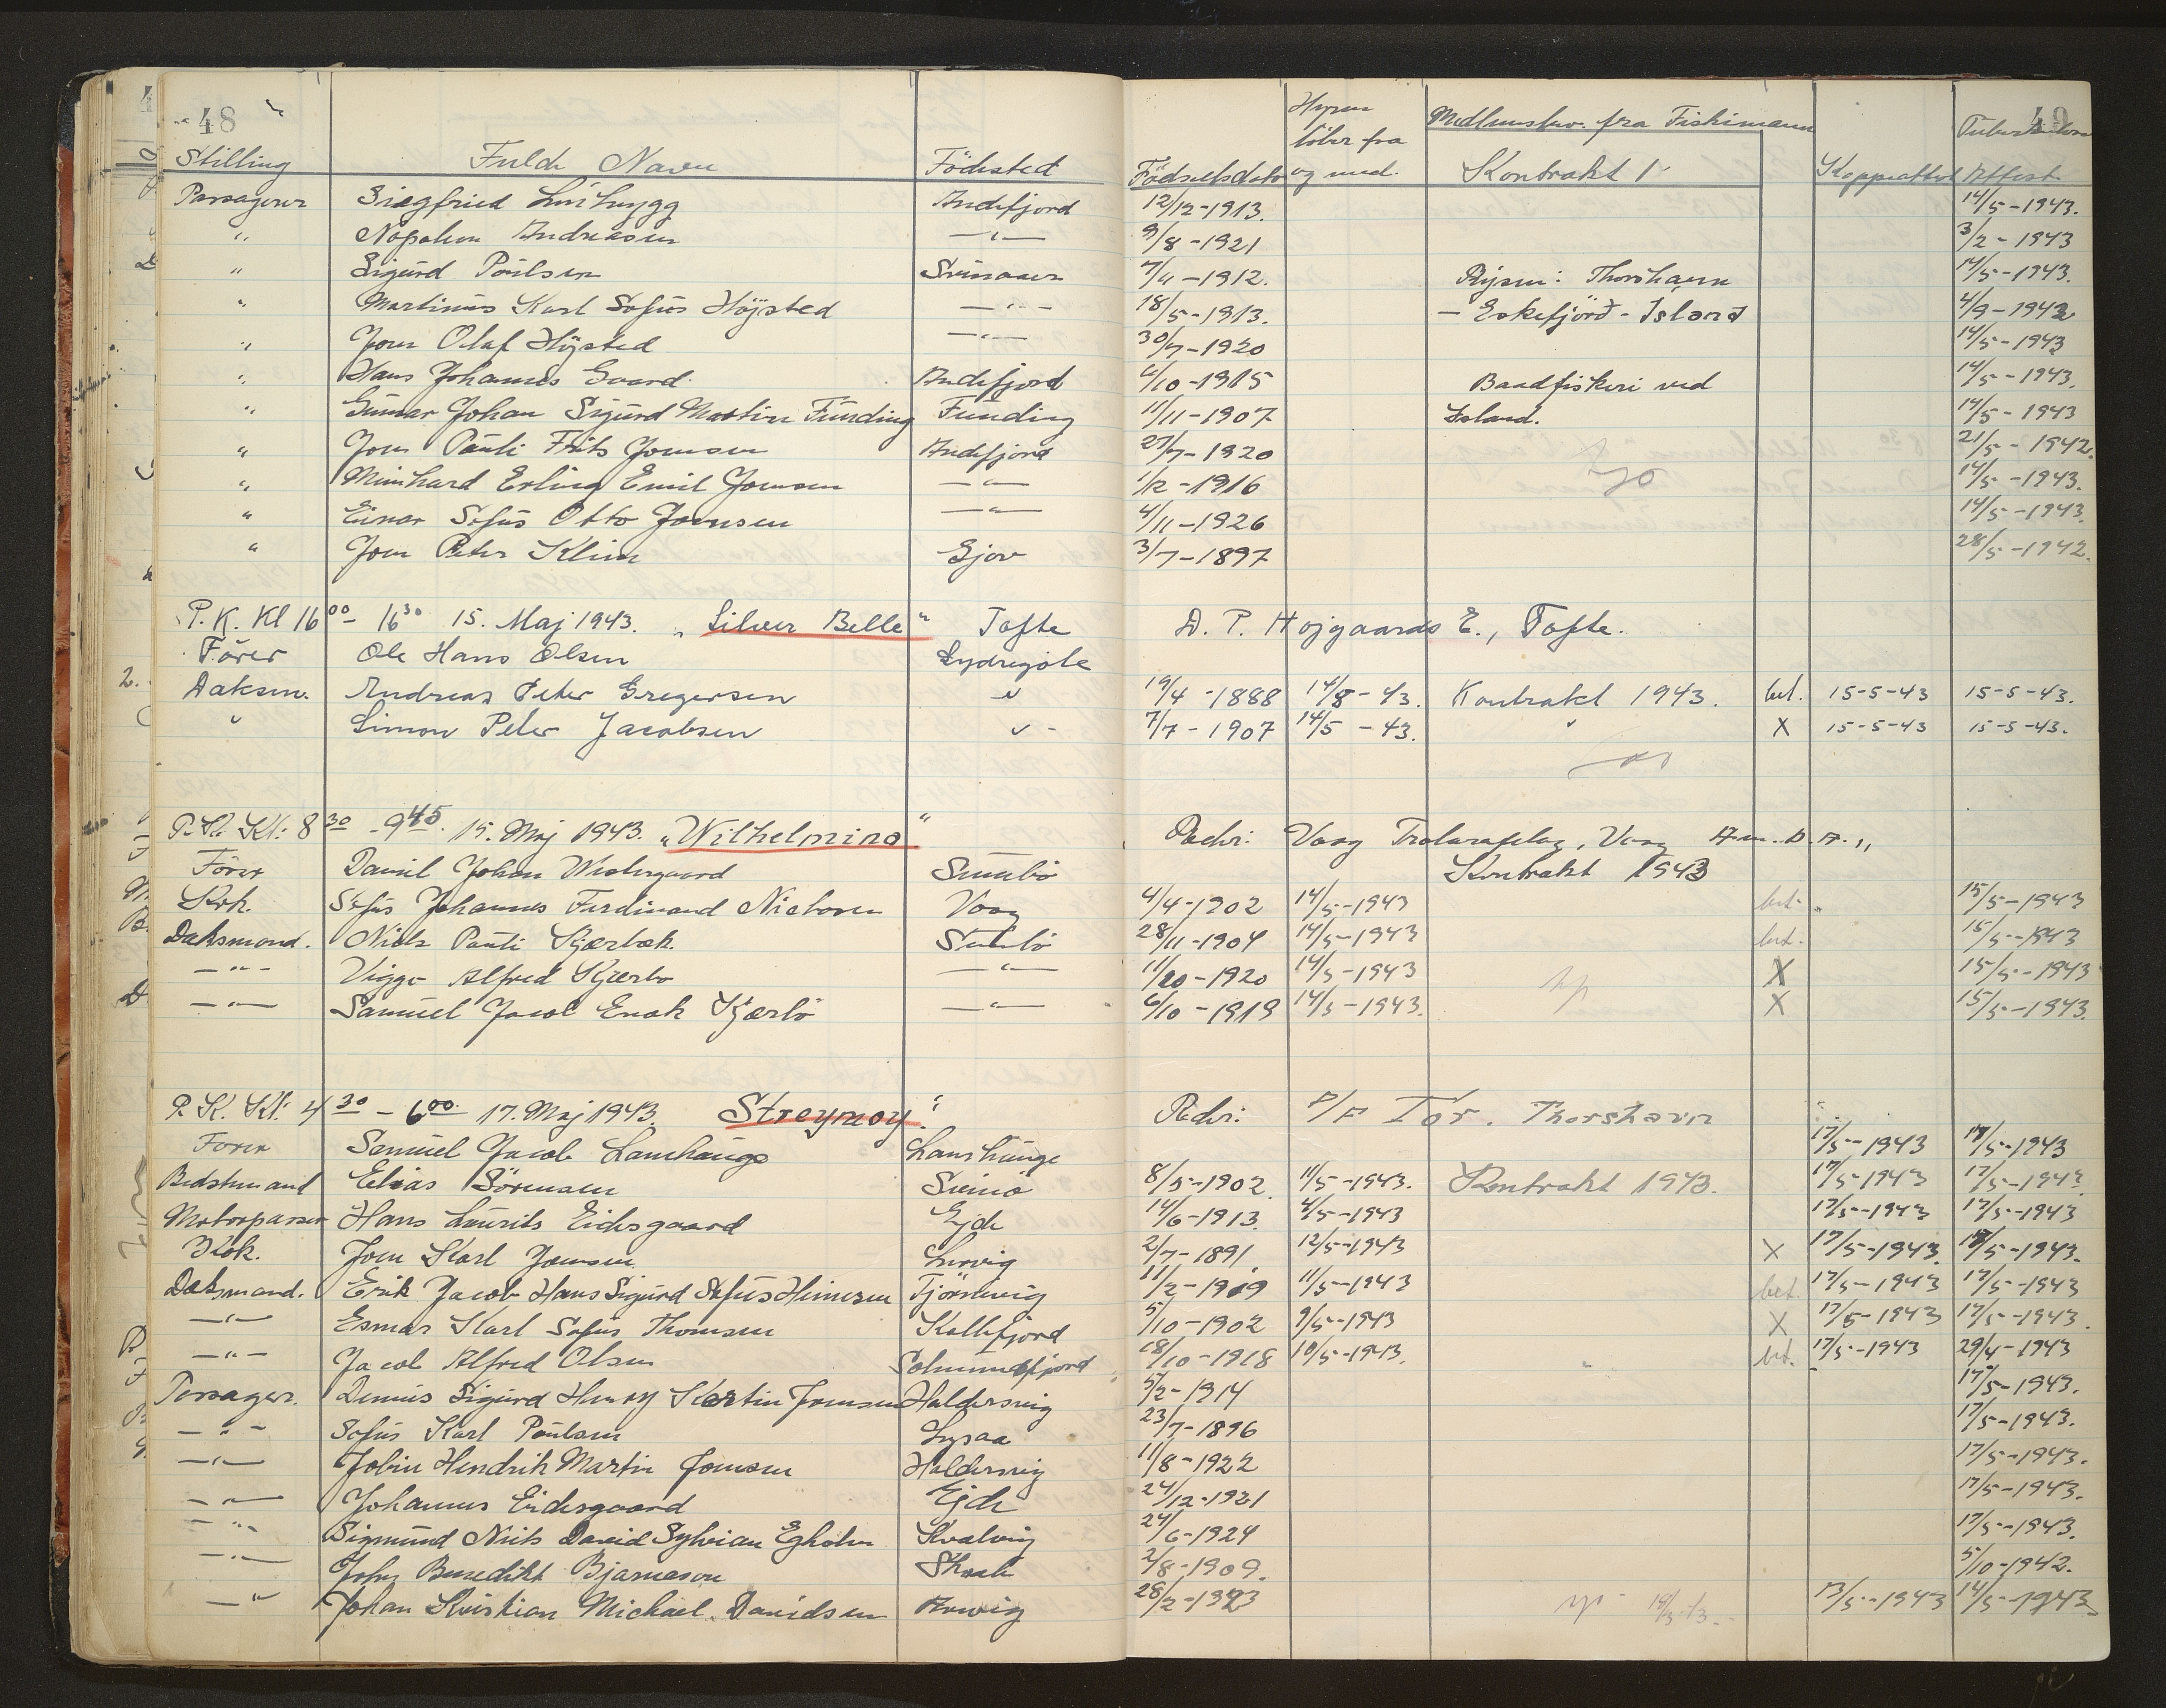 48
49
Stilling Fulde Navn Födested Födselsdato Hyren löber fra og med. Medlemsbev. fra Fiskimann Kontrakt Koppeattest Attest
Passagerer Siegfried Andefjord 12/12-1913. 14/5-1943.
" Napoleon Andreasen —"— 9/8-1921 3/2-1943
" Sigurd Poulsen 1912. Rejsen: Thorshavn 14/5-1943.
" Martinus Karl Sofus Höjsted —"— 18/5-1913. - Eskefjörd - Island 4/9-1942
" Joen Olaf Höjsted —"— 30/7-1920 14/5-1943
" Hans Johannes Gaard. Andefjord 6/10-1915 Baadfiskeri ved 14/5-1943.
" Gunnar Johan Sigurd Martin Funding Funding 11/11-1907 Island. 14/5-1943
" Joen Pauli Frits Joensen Andefjord 27/7-1920 21/5-1942.
" Meinhard Erling Emil Joensen —"— 1/12-1916 14/5-1943.
" Einar Sofus Otto Joensen —"— 4/11-1926 14/5-1943.
" Joen Peter Klein Gjov 3/7-1897 28/5-1942.
P.K. Kl 16 00 - 16 30 15. Maj 1943. "Silver Belle" Tofte D. P. Højgaards E., Tofte.
Förer Ole Hans Olsen Sydregöte
Daksm. Andreas Peter Gregersen " 19/4-1888 14/5-43. Kontrakt 1943. bet. 15-5-43 15-5-43.
" Simon Peter Jacobsen " - 7/7-1907 14/5-43. " X 15-5-43 15-5-43.
P.K. Kl: 8 30 - 9 45. 15. Maj 1943. "Wilhelmina" Rederi: Vaag Tralarafelag, Vaag
Förer Daniel Johan Westergaard Sumbö Kontrakt 1943
Kok. Sofus Johannes Ferdinand Vaag 4/4-1902 14/5-1943 bet. 15/5-1943
Daksmand. Niels Pauli Kjærbæk. Sumbö 28/11-1904 14/5-1943 bet. 15/5-1943
—"— Viggo Alfred Kjærbo —"— 1920 14/5-1943 X 15/5-1943
—"— Samuel Jacob Enok Kjærbö —"— 6/10-1919 14/5-1943. X 15/5-1943.
P.K. Kl: 4 30 - 6 00. 17. Maj 1943. Streymoy" Rederi: P/F Tor. Thorshavn
Förer Samuel Jacob Lamhauge Lamhauge 17/5-1943 17/5-1943
Bedstemand Elias Sörensen 8/5-1902. 11/5-1943. Kontrakt 1943. 17/5-1943 17/5-1943.
Motorpasser Hans Laurits Eidesgaard Ejde 14/6-1913. 4/5-1943 17/5-1943 17/5-1943
Kok. Joen Karl Joensen. 2/7-1891 12/5-1943 X 17/5-1943. 17/5-1943.
Daksmand. Erik Jacob Hans Sigurd Sofus Heinesen Tjörnevig 11/2-1919 11/5-1943 bet. 17/5-1943 17/5-1943
—"— Esmar Karl Sofus Thomsen Kollefjord 5/10-1902 9/5-1943 X 17/5-1943 17/5-1943.
—"— Jacob Alfred Olsen Solmundefjord 18/10-1918 10/5-1943. " bet. 17/5-1943 29/4-1943
Passager. Sigurd Henry Martin Joensen Haldersvig 5/2-1914 17/5-1943.
—"— Sofus Karl Poulsen 23/7-1896 17/5-1943.
—"— Hendrik Martin Joensen Haldersvig 11/8-1922 17/5-1943.
—"— Johannes Eidesgaard Ejde 24/12-1921 17/5-1943.
—"— Sigmund Niels David Sylvian Egholm Kvalvig 24/6-1924 17/5-1943.
—"— John Benedikt Bjarnason 2/8-1909. 5/10-1942.
—"— Johan Kristian Michael Davidsen 28/2-1923 13/5-1943 14/5-1943